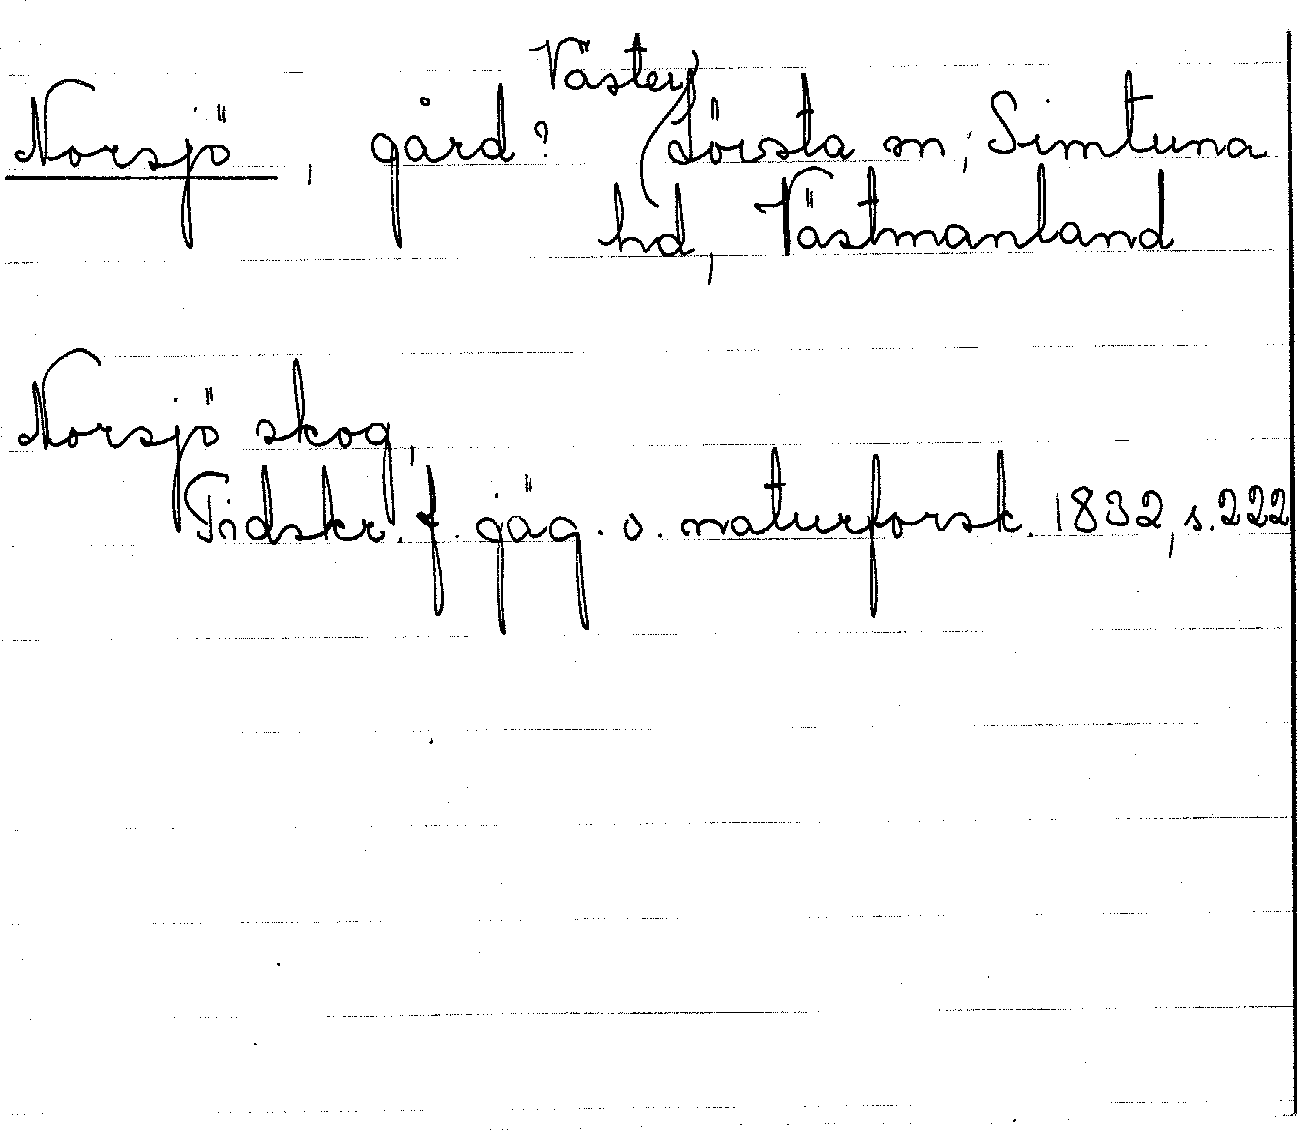 Norsjö, gård? Västerlövsta sn, Simtuna
hd, Västmanland
Norsjö skog,
Tidskr. f. jäg. o. naturforsk. 1832, s. 222